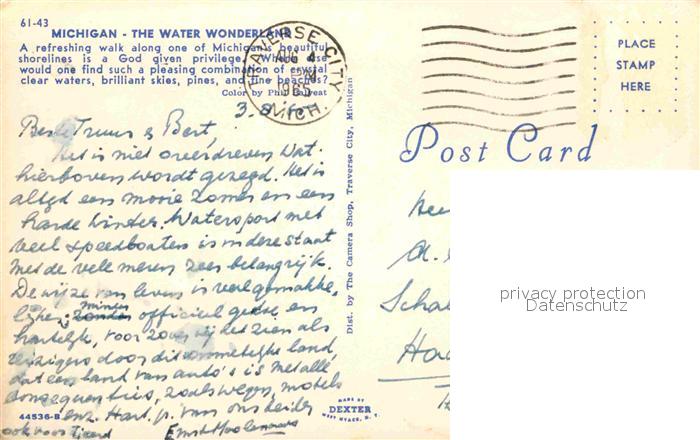 61-43
MICHIGAN - THE WATER WONDERLAND
A refreshing walk along one of Michigan's beautiful
shorelines is a God given privilege. Where else
would one find such a pleasing combination of crystal
clear waters, brilliant skies, pines, and fine beaches?
Color by Phil Balyeat
TRAVERSE CITY,
AUG 4
PM
1965
MICH.
PLACE
STAMP
HERE
Post Card
3.8.
Beste Truus & Bert,
Het is niet overdreven wat
hierboven wordt gezegd. Het is
altyd een mooie zomer en een
harde winter. Watersport met
veel speedboaten is in deze staat
met de vele meren zeer belangrijk.
De wijze van leven is veel gemakke-
lijker, minder officieel en
hartelijk, voor zover wij het zien als
reizigers door dit onmetelijke land,
dat een land van auto's is met alle
consequenties, zoals wegen, motels
enz. Hart. gr. van ons beiden
ook voor Tjeerd
Dist. by The Camera Shop, Traverse City, Michigan
44536-B
MADE BY
DEXTER
WEST NYACK, N. Y.
privacy protection
Datenschutz